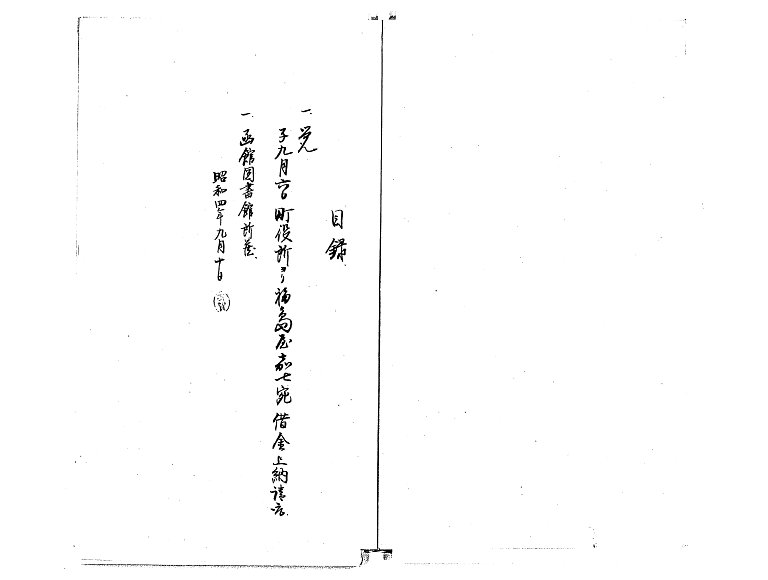 目録
一、覚
子九月六日 町役所ヨリ福島屋嘉七宛 借金上納請取
一、函館図書館所蔵
昭和四年九月十日